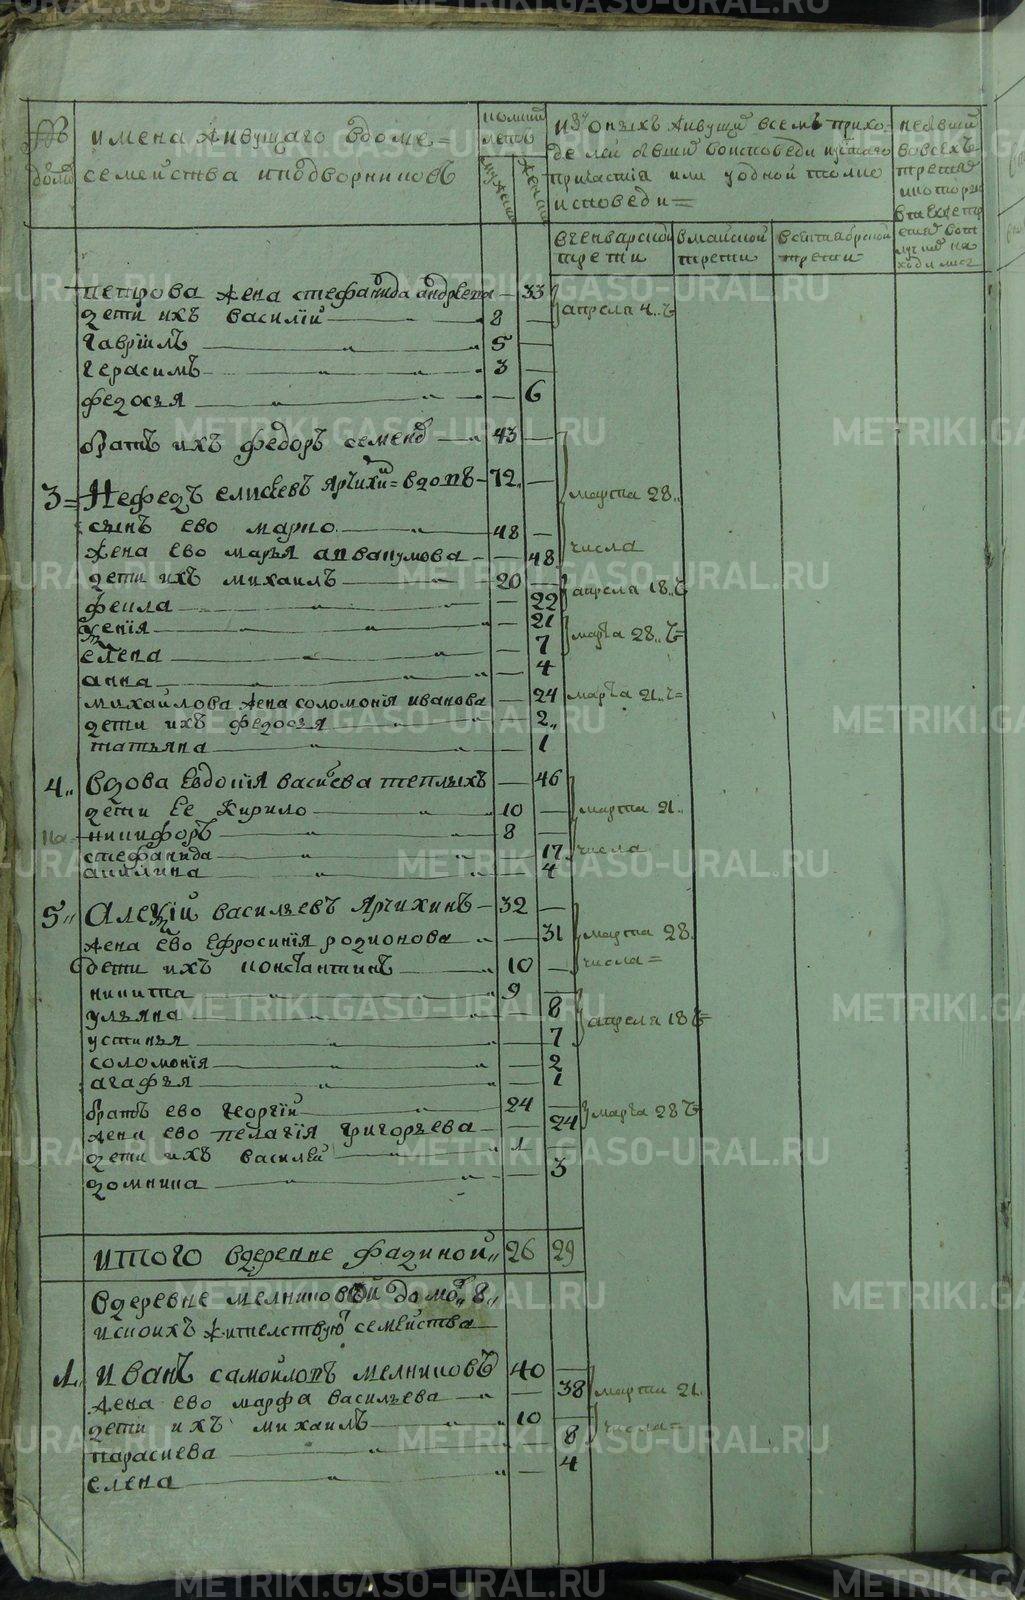 № домов
имена живущаго вдоме
семейства иподворниковъ
коликий летъ
мужеска
женска
изъ оныхъ живущий всемъ прихо-
де кои бывши воисповеди исвятаго
причастия или уодной толко
исповеди=
небывший
вовсехъ
трехъ
вгенварской трети
вмайской трети
всентябрской трети
петрова жена стефанида андреева — 33 апреля 4.. ч
дети ихъ василий — 8 —
гаврiилъ — 5 —
герасимъ — 3 —
федосья — 6
братъ ихъ федоръ семенов — 43 —
3= Нефедъ елисеевъ Ярчихи= вдовъ — 72 — марта 28..
сынъ ево марко — 48 — числа
жена ево марья аввакумова — 48
дети ихъ михаилъ — 20 — апреля 18.. ч
фекла — 22
ксенiя — 21 марта 28.. ч=
елена — 7
анна — 4
михайлова жена соломонiя иванова — 24 марта 21.. ч=
дети ихъ федосья — 2..
татьяна — 1
4.. вдова Евдокiя василева теплыхъ — 46
дети Ее Кирило — 10 — марта 21..
никифоръ — 8 —
стефанида — 17 числа
акилина — 4
5.. Алексiй васильевъ Ярчихинъ — 32 —
жена ево Ефросинiя родионова — 31 марта 28.
дети ихъ константинъ — 10 — числа=
никита — 9 —
ульяна — 8 апреля 18 ч=
устинья — 7
соломонiя — 2
агафья — 1
братъ ево георгiй — 24 — марта 28 ч
жена ево пелагiя григорьева — 24
дети ихъ василей — 1 —
домника — 3
итого вдеревне фадиной.. 26 29
вдеревне мелниковой домов.. 8..
искоихъ жителствуют семейства
1.. иванъ самойловъ мелниковъ 40 —
жена ево марфа васильева — 38 марта 21.
дети ихъ михаилъ — 10 — числа=
параскева — 8
елена — 4
METRIKI.GASO-URAL.RU